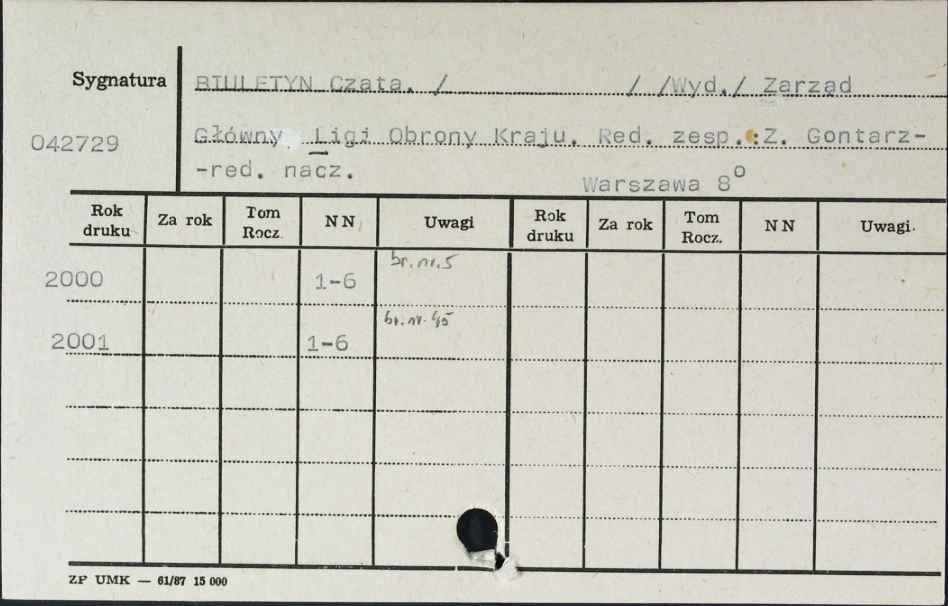 Sygnatura BIULETYN Czata. / / /Wyd./ Zarząd
042729 Główny Ligi Obrony Kraju. Red. zesp.:Z. Gontarz-
-red. nacz.
Warszawa 8°
Rok druku Za rok Tom Rocz. NN Uwagi Rok druku Za rok Tom Rocz. NN Uwagi
2000 1-6 br. nr. 5
2001 1-6 br. nr. 45
ZP UMK — 61/87 15 000